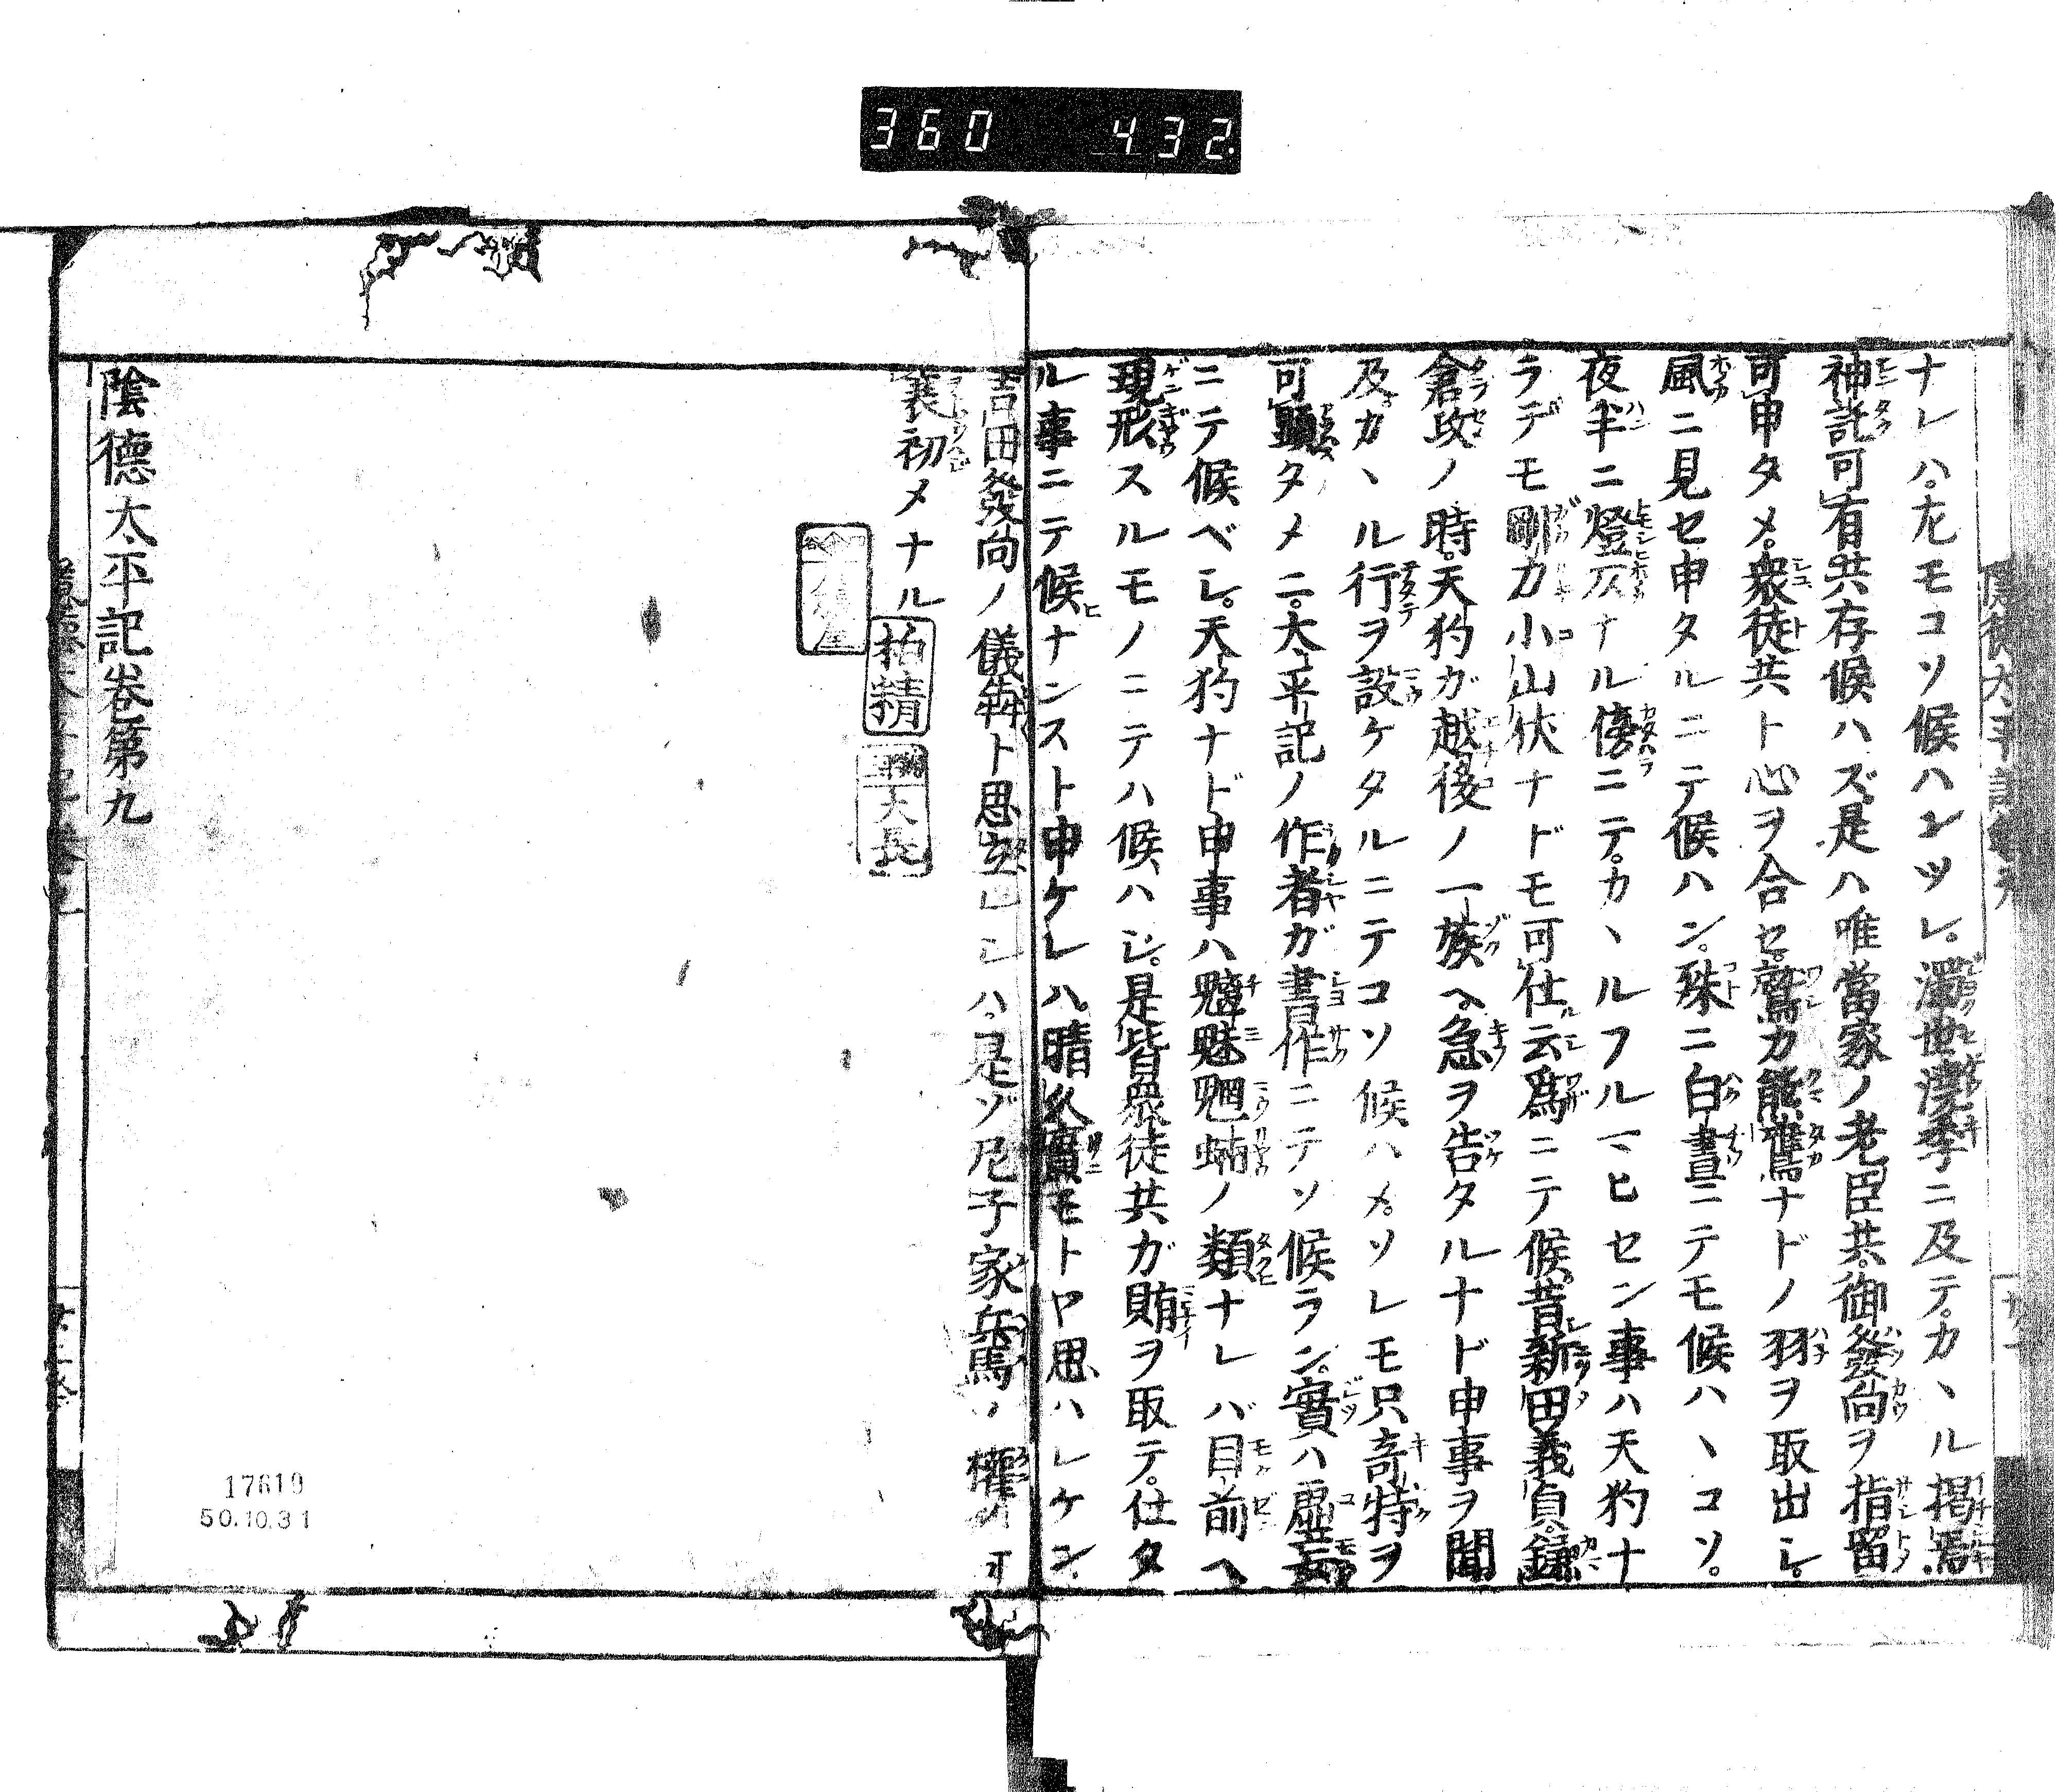 360 432
ナレハ。尤モコソ候ハンツレ。濁世澆季ニ及テ。カヽル掲焉
神託可有共存候ハズ。是ハ唯當家ノ老臣共。御發向ヲ指留
可申タメ。衆徒共ト心ヲ合セ。鷲カ熊鷹ナドノ羽ヲ取出シ。
風ニ見セ申タルニテ候ハン。殊ニ白晝ニテモ候ハヽコソ。
夜半ニ燈灰ナル傍ニテ。カヽルフルマヒセン事ハ天狗ナ
ラデモ剛カ小山伏ナドモ可仕云爲ニテ候。昔新田義貞。鎌
倉攻ノ時。天狗ガ越後ノ一族ヘ。急ヲ告タルナド申事ヲ聞
及。カヽル行ヲ設ケタルニテコソ候ハメ。ソレモ只奇特ヲ
可顯タメニ。太平記ノ作者ガ書作ニテソ候ラン。實ハ虚妄
ニテ候ベシ。天狗ナド申事ハ魑魅魍蝄ノ類ナレバ目前ヘ
現形スルモノニテハ候ハジ。是皆衆徒共ガ賄ヲ取テ。仕タ
ル事ニテ候ヒナンスト申ケレハ。晴久實モトヤ思ハレケン。
吉田發向ノ儀犇ト思立レシハ。是ゾ尼子家兵馬ノ權ノ可
衰初メナル
柏精
大長
陰德太平記卷第九
17619
50.10.31